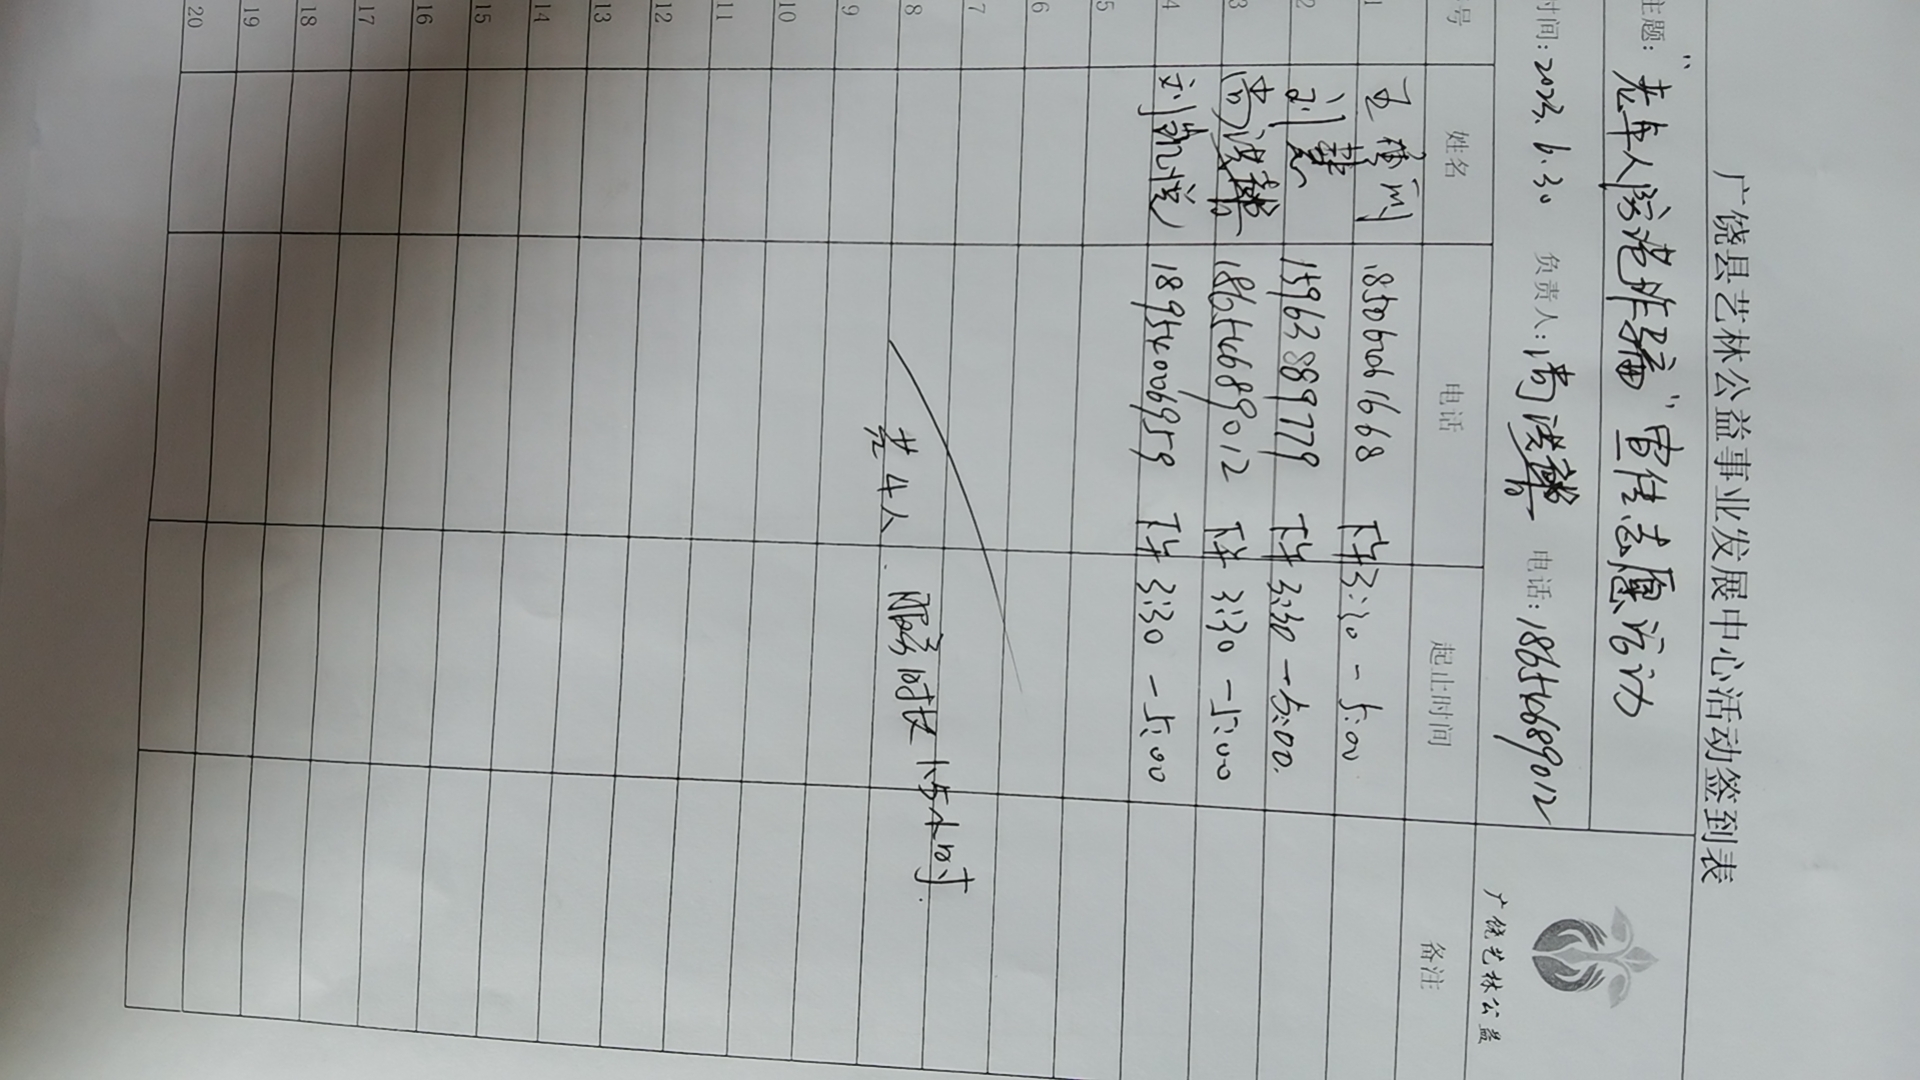 广饶县艺林公益事业发展中心活动签到表
主题：“老年人防范诈骗”宣传志愿活动
时间：2023.6.30 负责人：尚洪 电话：18654689012
广饶艺林公益
号 姓名 电话 起止时间 备注
1 王 18506201668 下午3:30-5:00
2 刘慧 15963889779 下午3:30-5:00.
3 尚洪 18654689012 下午3:30-5:00
4 刘凯悦 18954006959 下午3:30-5:00
5
6
7
8 共4人. 服务时长1.5小时.
9
10
11
12
13
14
15
16
17
18
19
20